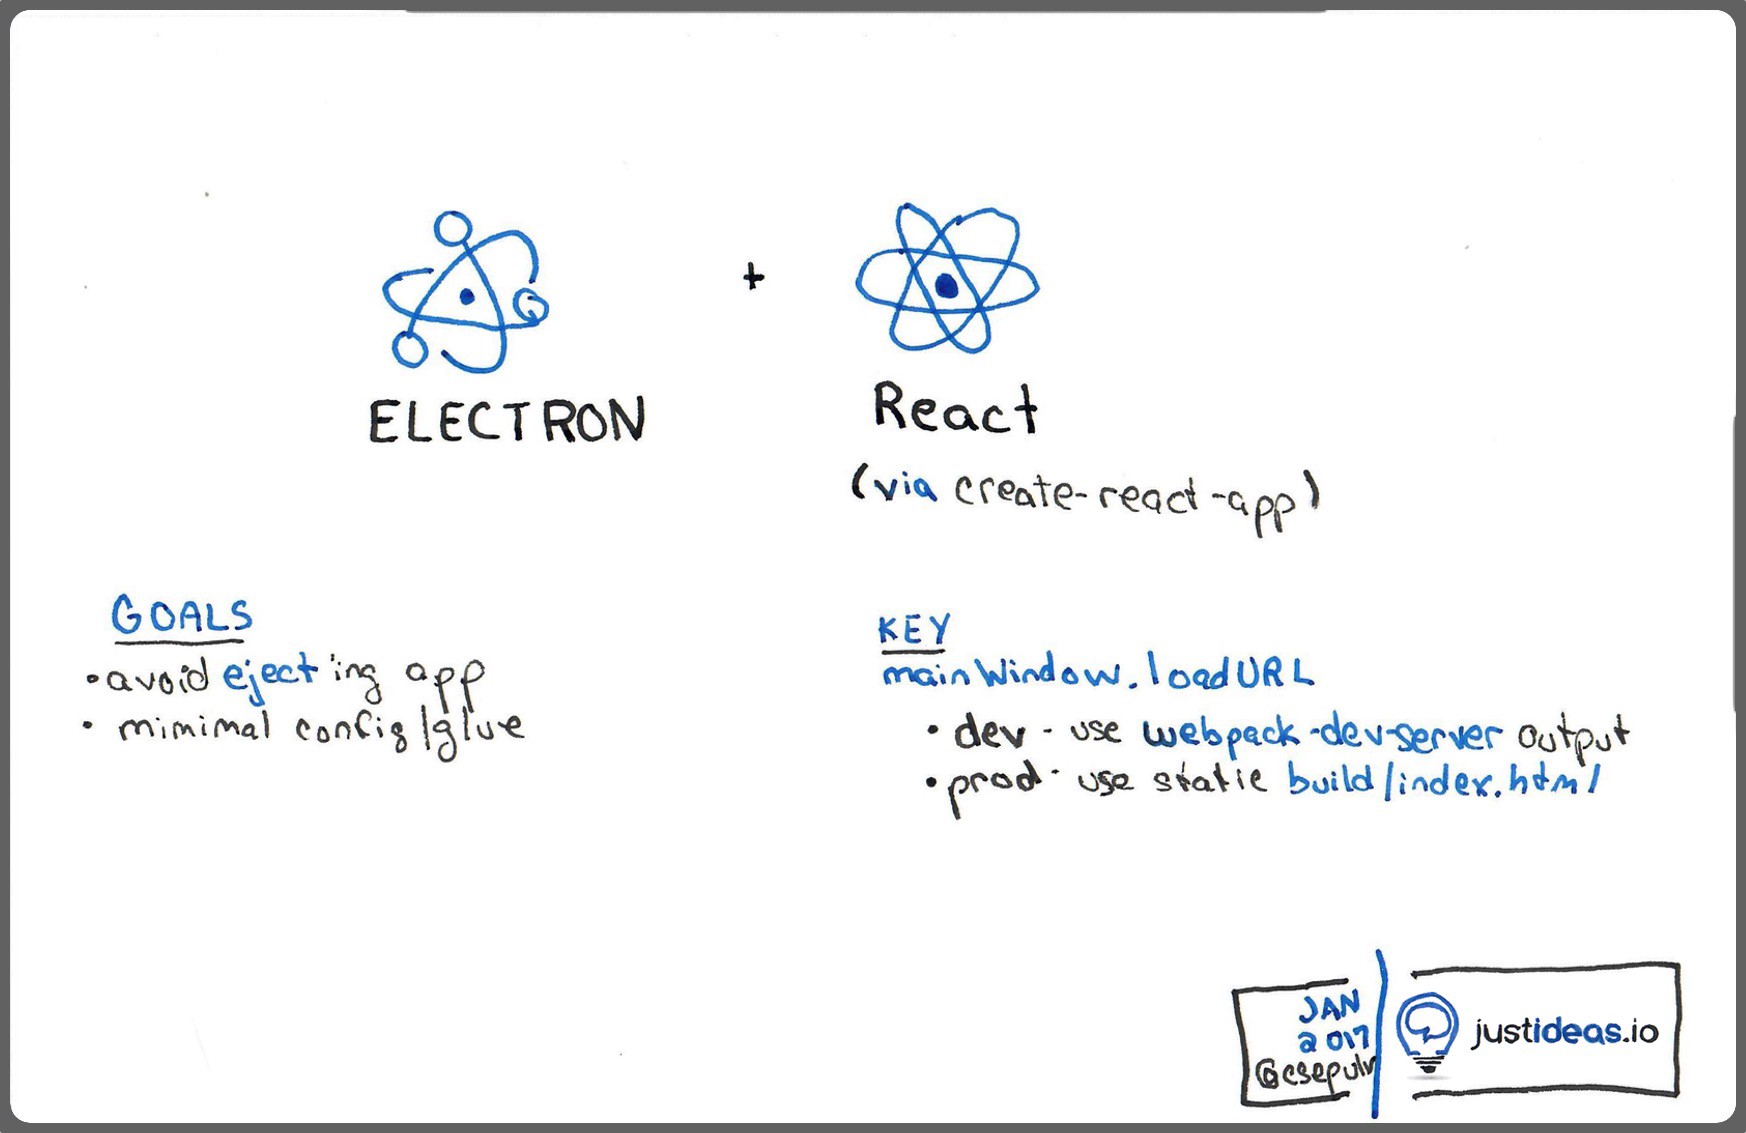 ELECTRON + React
(via create-react-app)
GOALS
• avoid ejecting app
• mimimal config/glue
KEY
mainWindow.loadURL
• dev - use webpack-dev-server output
• prod - use static build/index.html
JAN
2017
@csepulv
justideas.io